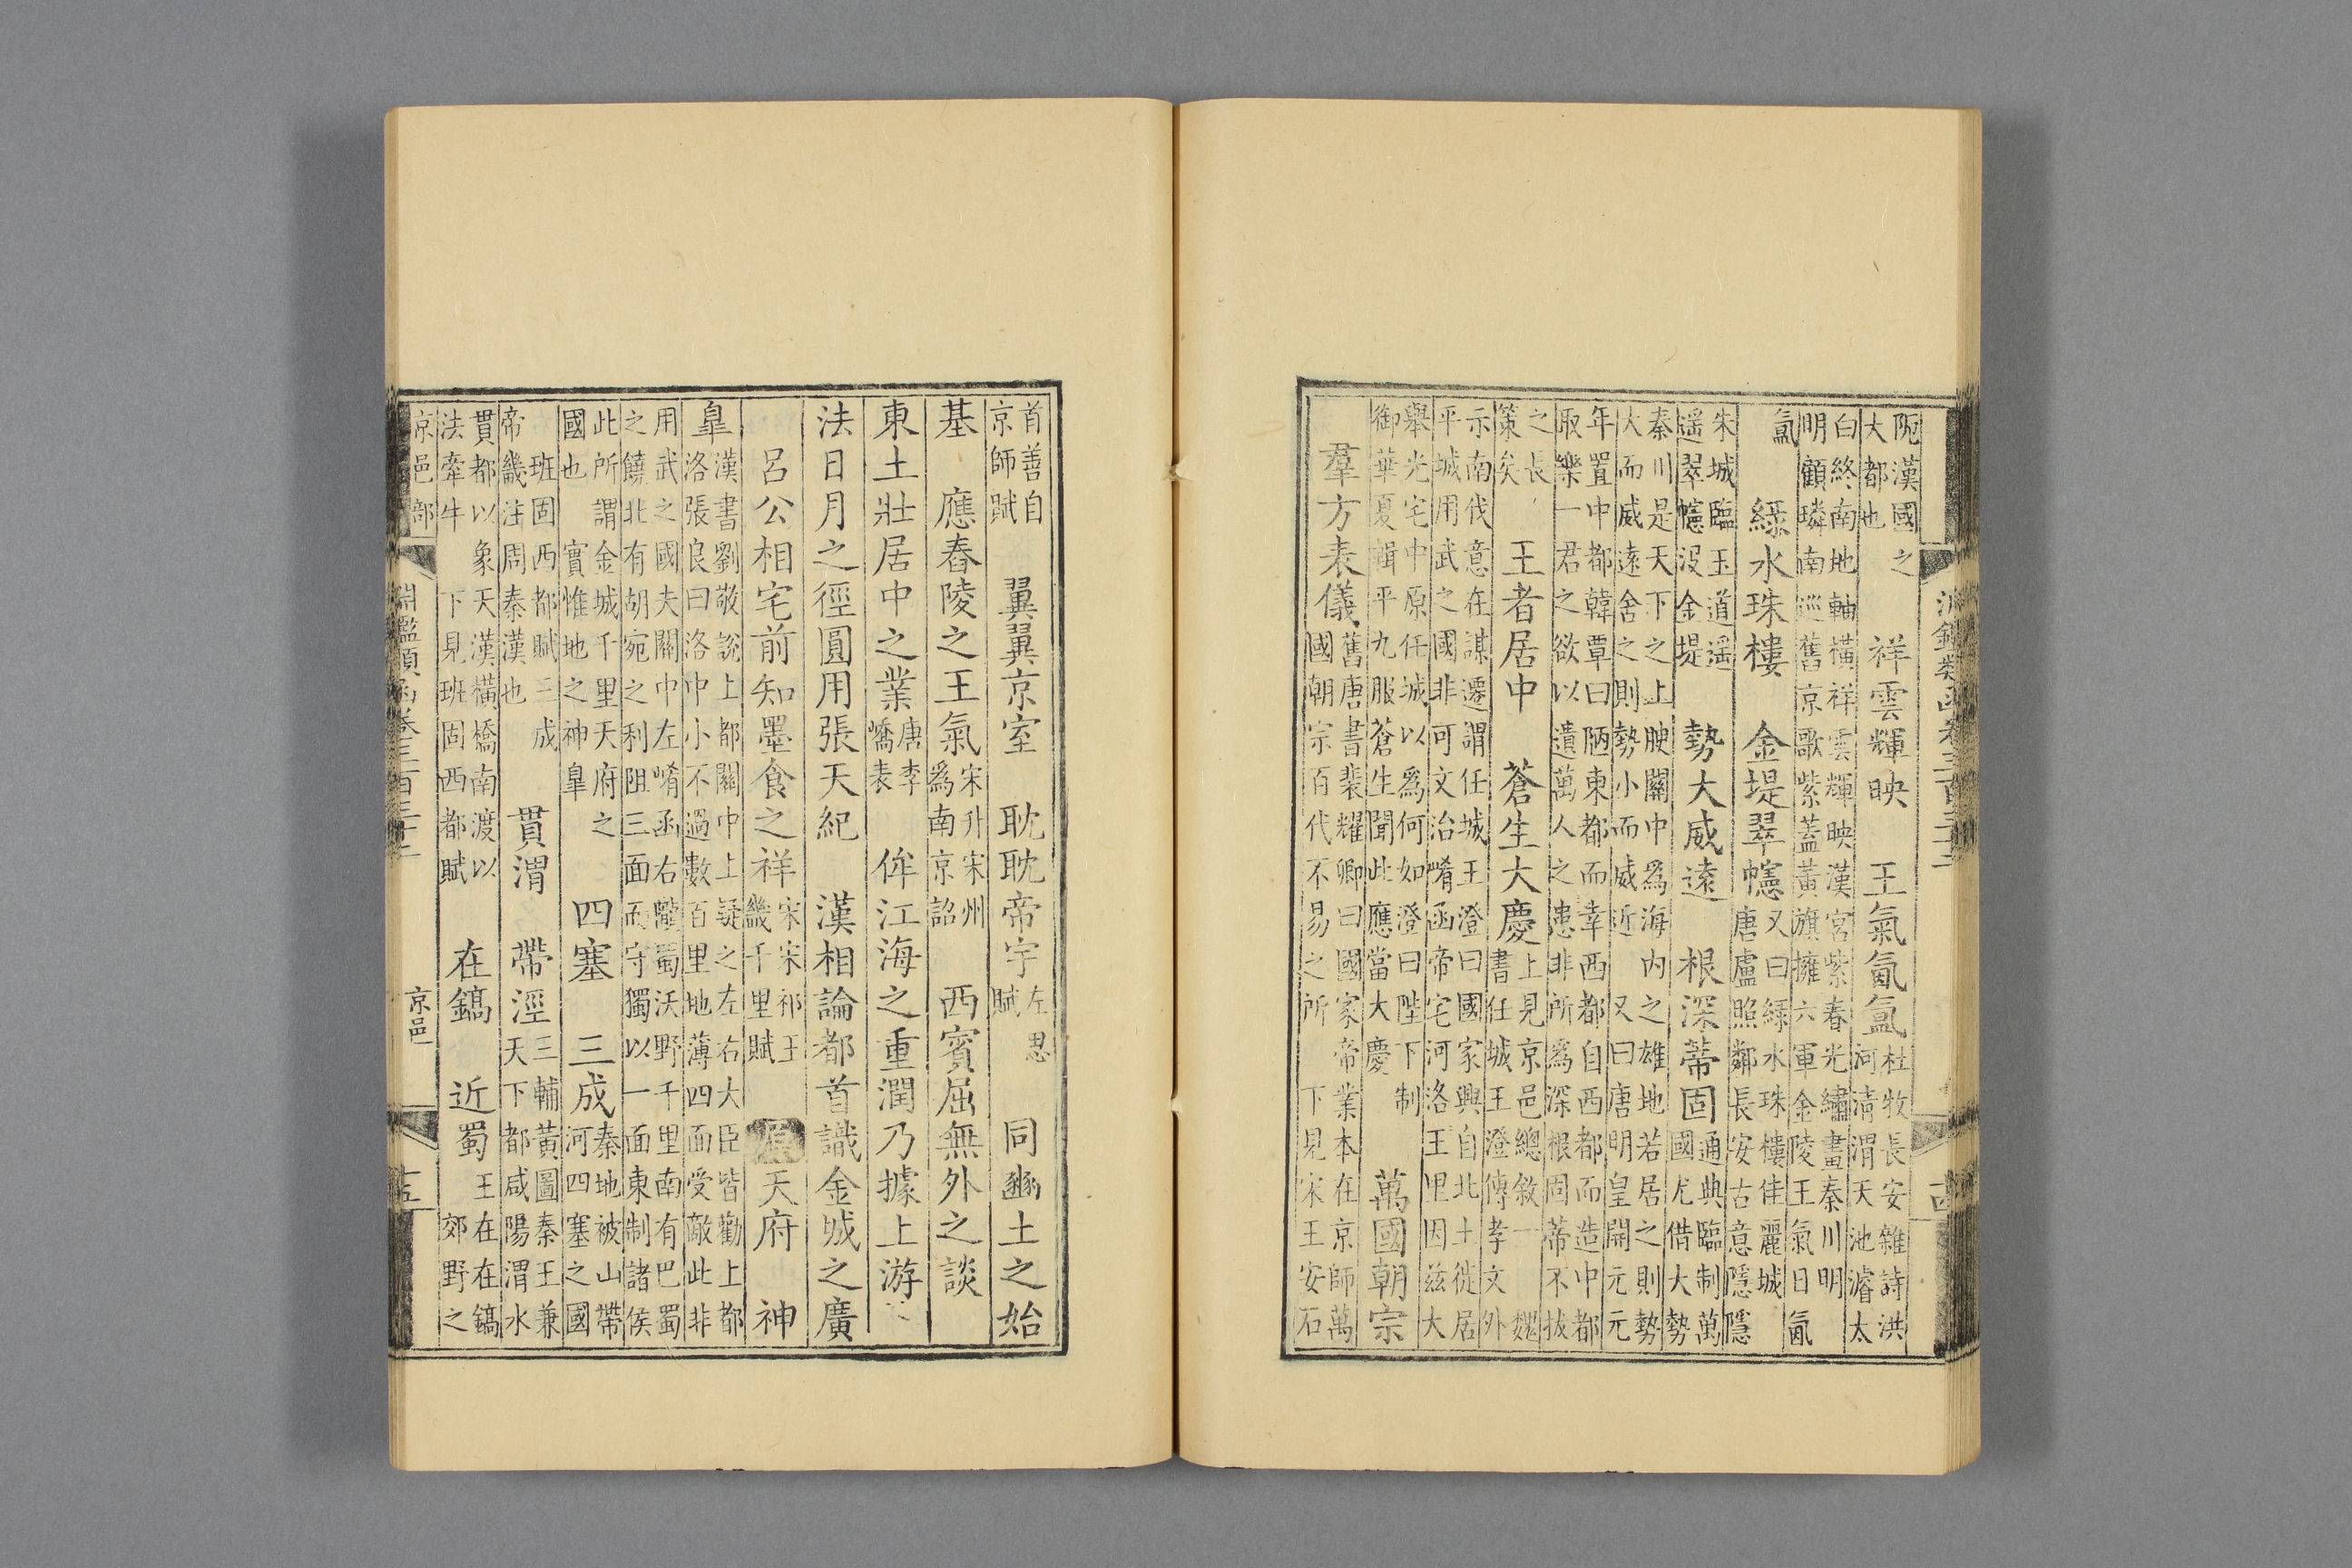 阸漢國之
大都也
祥雲輝映　王氣氤氳
杜牧長安雜詩洪
河清渭天池濬太
白終南地軸橫祥雲輝映漢宮紫春光繡畫秦川明
明顧璘南巡舊京歌紫蓋黃旗擁六軍金陵王氣日氤
氳
綠水珠樓　金堤翠幰
又曰綠水珠樓佳麗城
唐盧照鄰長安古意隱隱
朱城臨玉道遥
遥翠幰沒金堤
勢大威遠　根深蒂固
通典臨制萬
國尤借大勢
秦川是天下之上腴關中爲海內之雄地若居之則勢
大而威遠舍之則勢小而威近　又曰唐明皇開元元
年置中都韓覃曰陋東都而幸西都自西都而造中都
取樂一君之欲以遺萬人之患非所爲深根固蒂不拔
之長
策矣
王者居中　蒼生大慶
上見京邑總敘一　魏
書任城王澄傳孝文外
示南伐意在謀遷謂任城王澄曰國家興自北土徙居
平城用武之國非可文治崤函帝宅河洛王里因茲大
舉光宅中原任城以爲何如澄曰陛下制
御華夏輯平九服蒼生聞此應當大慶
萬國朝宗
羣方表儀
舊唐書裴耀卿曰國家帝業本在京師萬
國朝宗百代不易之所　下見宋王安石
首善自
京師賦
翼翼京室　耽耽帝宇
左思
賦
同豳土之始
基　應舂陵之王氣
宋升宋州
爲南京詔
西賓屈無外之談
東土壯居中之業
唐李
嶠表
侔江海之重潤乃據上游
法日月之徑圓用張天紀　漢相論都首識金城之廣
呂公相宅前知墨食之祥
宋宋祁王
畿千里賦
原　天府　神
皐
漢書劉敬說上都關中上疑之左右大臣皆勸上都
洛張良曰洛中小不過數百里地薄四面受敵此非
用武之國夫關中左崤函右隴蜀沃野千里南有巴蜀
之饒北有胡宛之利阻三面而守獨以一面東制諸侯
此所謂金城千里天府之
國也　實惟地之神皐
四塞　三成
秦地被山帶
河四塞之國
班固西都賦三成
帝畿注周秦漢也
貫渭　帶涇
三輔黃圖秦王兼
天下都咸陽渭水
貫都以象天漢橫橋南渡以
法牽牛　下見班固西都賦
在鎬　近蜀
王在在鎬
郊野之
京邑部
淵鑑類函卷三百三十
京邑
十五